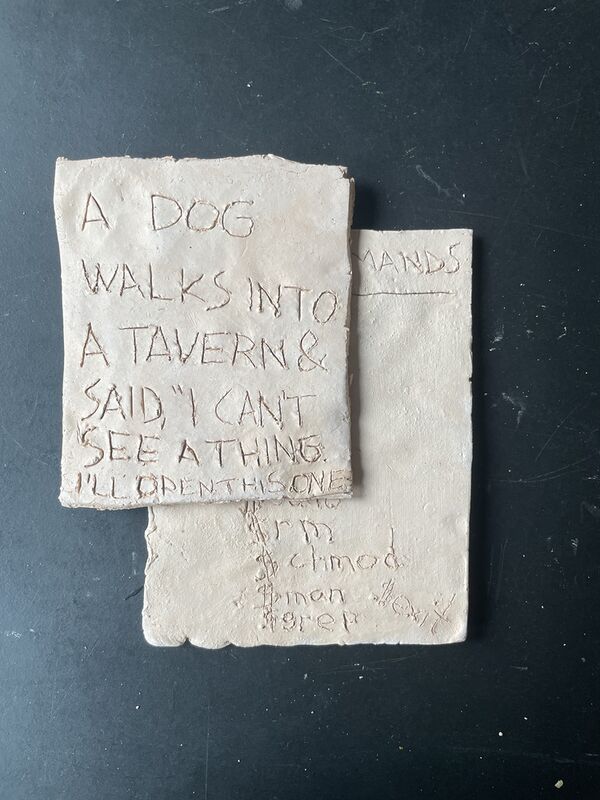 A DOG
WALKS INTO
A TAVERN &
SAID, "I CAN'T
SEE A THING.
I'LL OPEN THIS ONE
MANDS
$rm
$ chmod
$man
$exit
$grep